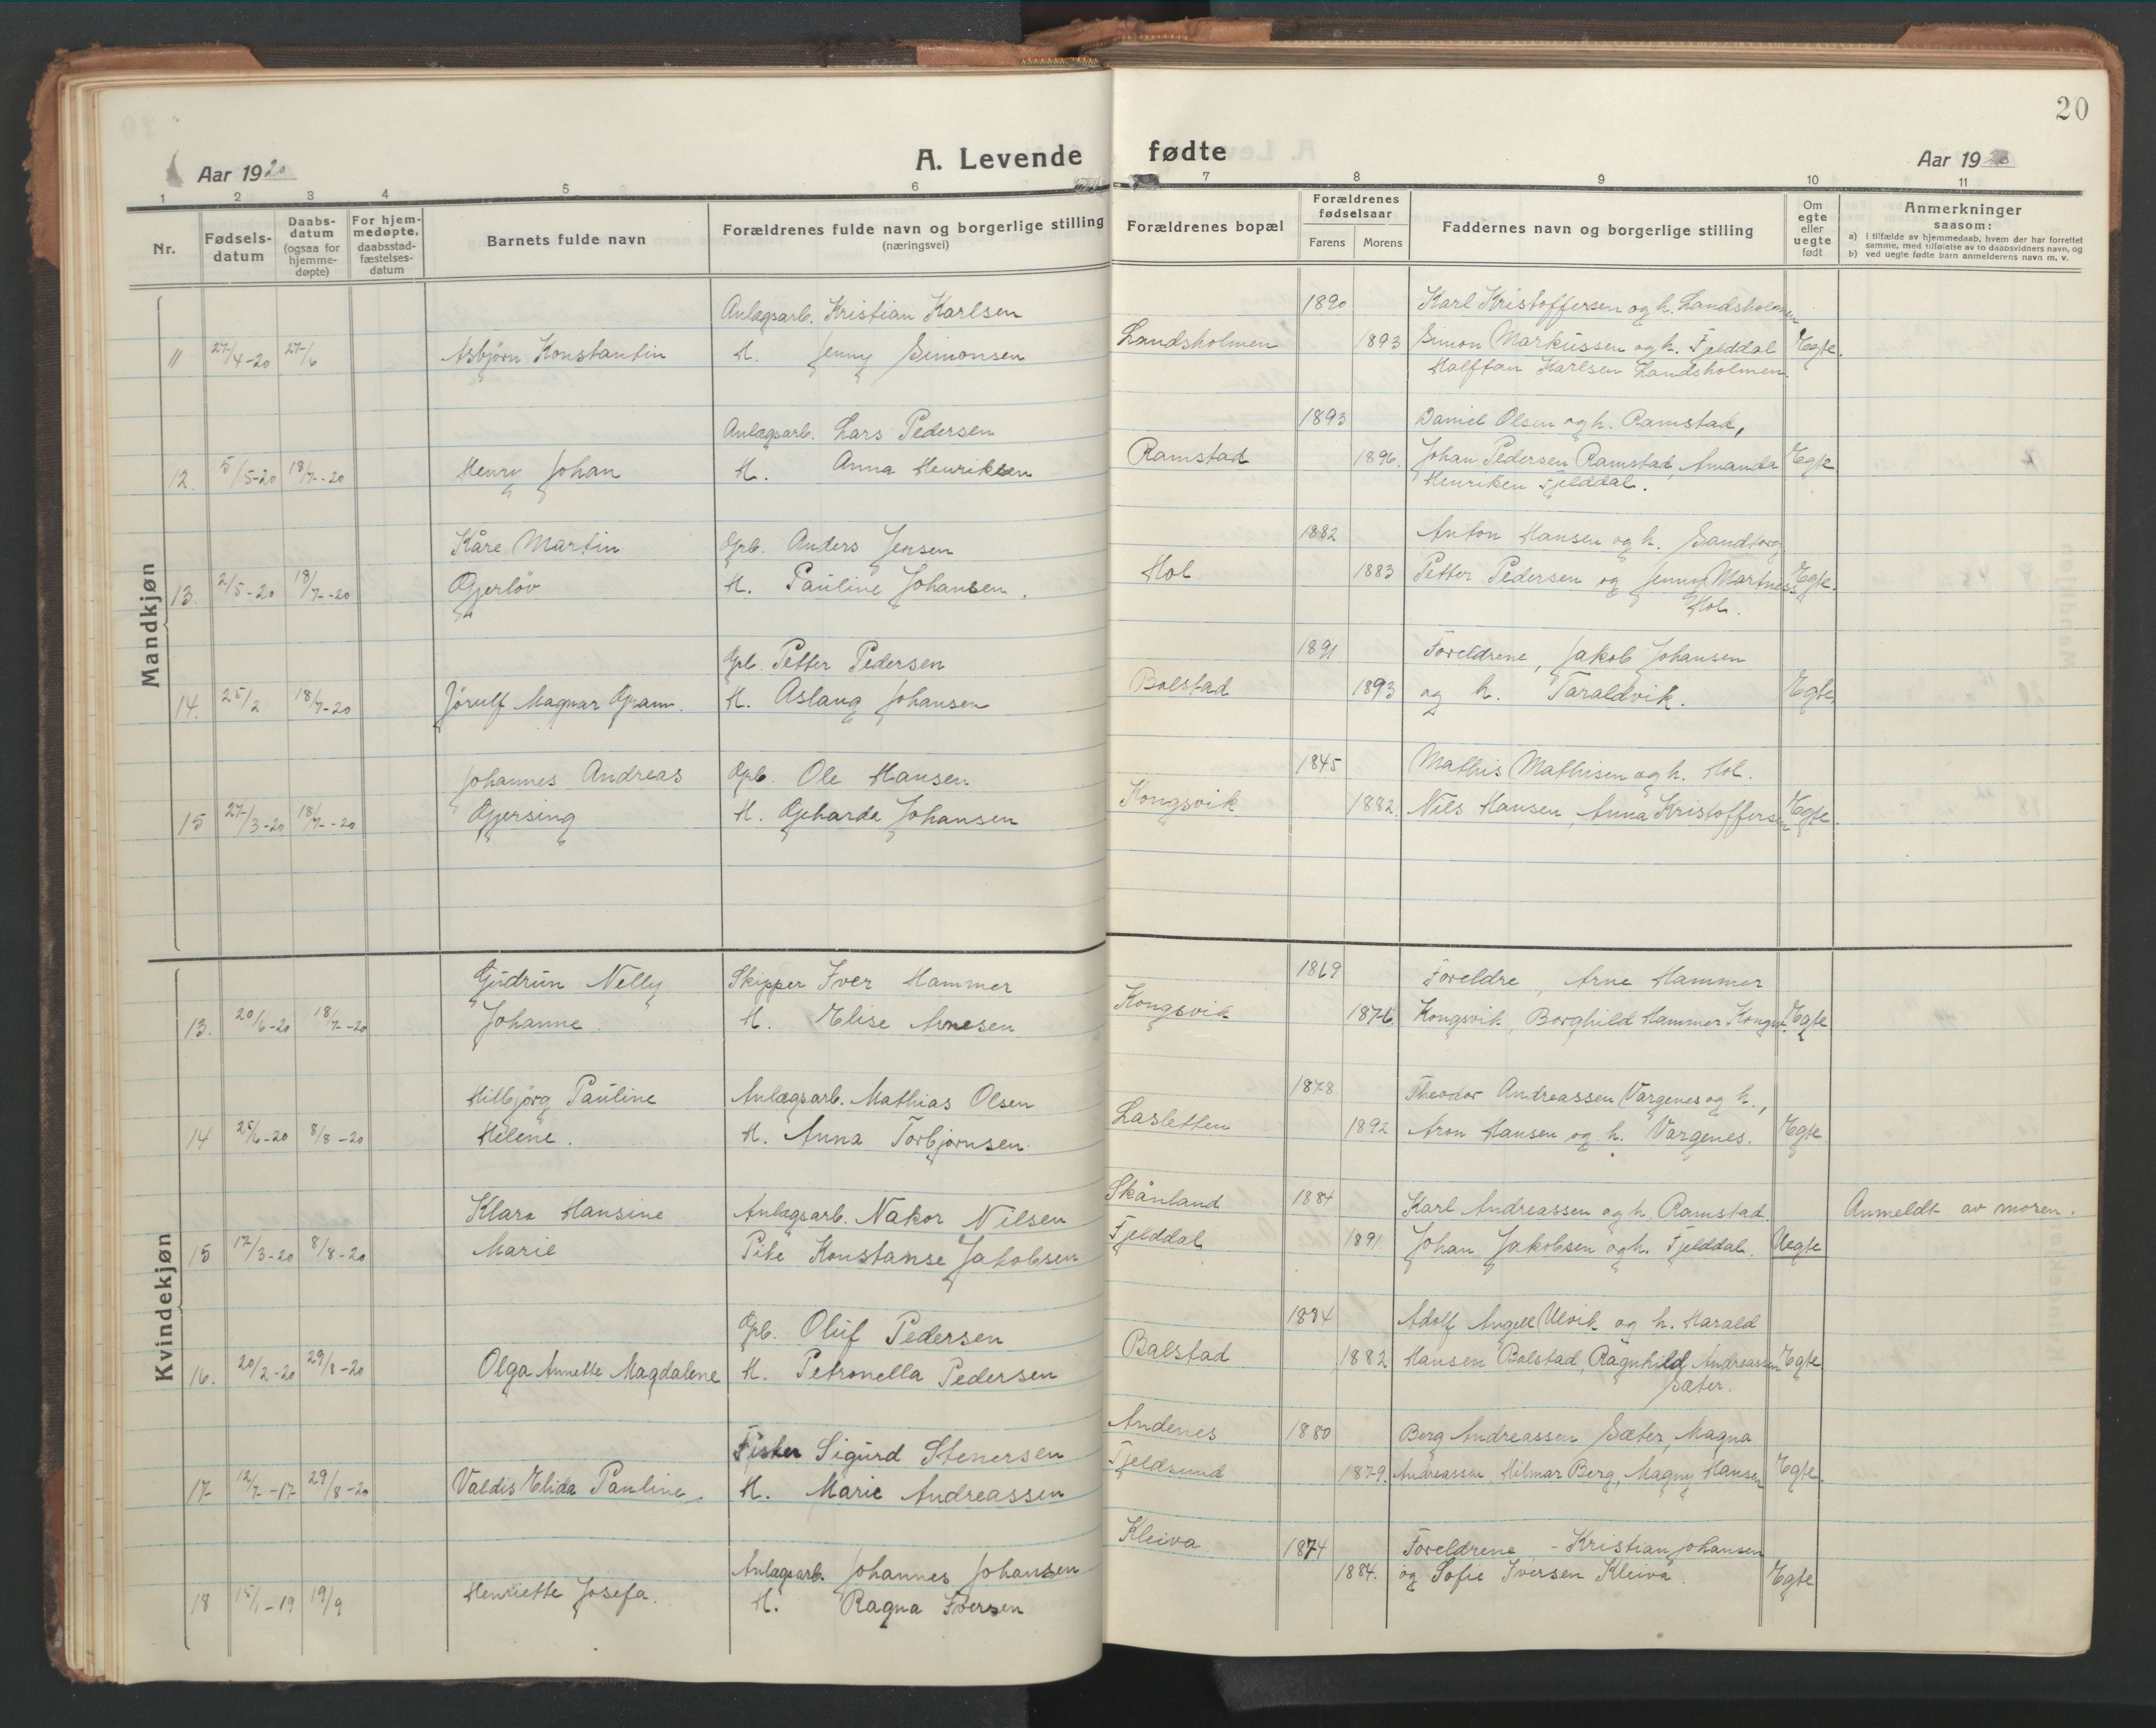 20
Aar 1920
A. Levende fødte
Aar 1920
1 2 3 4 5 6 7 8 9 10 11
Nr.
Fødsels-
datum
Daabs-
datum
(ogsaa for
hjemme-
døpte)
For hjem-
medøpte,
daabsstad-
fæstelses-
datum
Barnets fulde navn
Forældrenes fulde navn og borgerlige stilling
(næringsvei)
Forældrenes bopæl
Forældrenes
fødselsaar
Farens Morens
Faddernes navn og borgerlige stilling
Om
egte
eller
uegte
født
Anmerkninger
saasom:
a) i tilfælde av hjemmedaab, hvem der har forrettet
samme, med tilføielse av to daabsvidners navn, og
b) ved uegte fødte barn anmelderens navn m. v.
Mandkjøn
Anlægsarb. Kristian Karlsen 1890 Karl Kristoffersen og h. Landsholmen
11 27/4-20 27/6 Asbjørn Konstantin H. Jenny Simonsen Landsholmen 1893 Simon Markussen og h. Fjelddal Egte.
Halftan Karlsen Landsholmen.
Anlægsarb. Lars Pedersen 1893 Daniel Olsen og h. Ramstad,
12. 5/5-20 18/7-20 Henry Johan H. Anna Henriksen Ramstad 1896. Johan Pedersen Ramstad, Amanda Egte
Henriken Fjelddal.
Kåre Martin Grb. Anders Jensen 1882 Anton Hansen og h. Sandtorg
13. 2/5-20 18/7-20 Gjerløv H. Pauline Johansen. Hol 1883 Petter Pedersen og Jenny Martnes Egte.
Hol.
Grb. Petter Pedersen 1891 Foreldrene, Jakob Johansen
14. 25/2 18/7-20 Jørulf Magnar Gram. H. Aslaug Johansen Bolstad 1893 og h. Taraldvik. Egte
Johannes Andreas Grb. Ole Hansen 1845 Mathis Mathisen og h. Hol.
15 27/3-20 18/7-20 Gjersing H. Gjeharda Johansen Kongsvik 1882. Nils Hansen, Anna Kristoffersen Egte.
Kvindekjøn
Gudrun Nelly Skipper Iver Hammer 1869 Foreldre, Arne Hammer
13. 20/6-20 18/7-20 Johanne. H. Elise Arnesen Kongsvik 1876. Kongsvik, Borghild Hammer Kongsv. Egte
Hilbjørg Pauline Anlægsarb. Mathias Olsen 1878 Theodor Andreassen Vargenes og h.,
14 25/6-20 8/8-20 Helene. H. Anna Torbjørnsen. Lasletten 1892 Aron Hansen og h. Vargenes. Egte.
Klara Hansine Anlægsarb. Nakor Nilsen Skånland 1884 Karl Andreassen og h. Ramstad. Anmeldt av moren.
15 17/3-20 8/8-20 Marie Pike Konstanse Jakobsen Fjelddal 1891 Johan Jakobsen og h. Fjelddal. Uegte
Grb. Oluf Pedersen 1884 Adolf Angell Ulvik og h. Harald
16. 20/2-20 29/8-20 Olga Annette Magdalene H. Petronella Pedersen Balstad 1882 Hansen Bolstad, Ragnhild Andreassen Egte
Sæter.
Fisker Sigurd Stenersen Andenes 1880 Berg Andreassen Sæter, Magna
17 12/7-17 29/8-20 Valdis Elida Pauline. H. Marie Andreassen Fjeldsund 1879. Andreassen, Hilmar Berg, Magny Hansen Egte.
Anlægsarb. Johannes Johansen Kleiva 1874 Foreldrene - Kristian Johansen
18 15/1-19 19/9 Henriette Josefa. H. Ragna Iversen 1884. og Sofie Iversen Kleiva. Egte